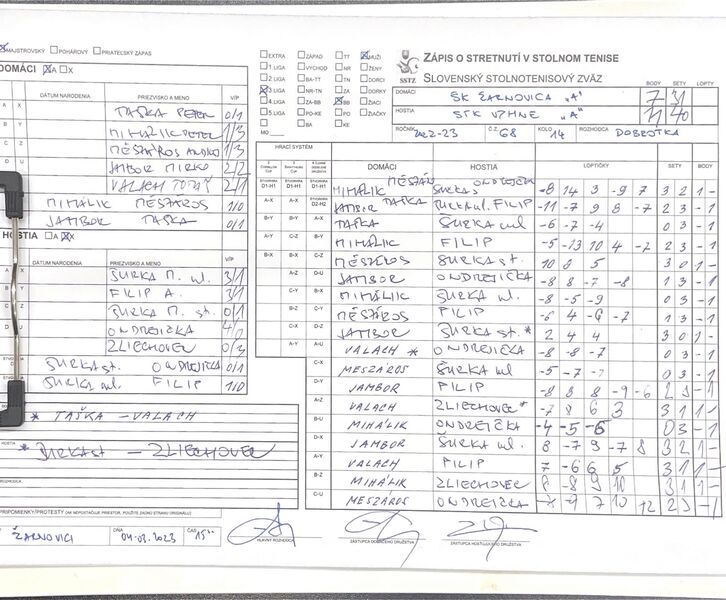 MAJSTROVSKÝ POHÁROVÝ PRIATEĽSKÝ ZÁPAS
ZÁPIS O STRETNUTÍ V STOLNOM TENISE
SLOVENSKÝ STOLNOTENISOVÝ ZVÄZ
SSTZ
EXTRA ZÁPAD TT MUŽI
1 LIGA VÝCHOD NR ŽENY
2 LIGA BA-TT TN DORCI
3 LIGA NR-TN ZA DORKY
4 LIGA ZA-BB BB ŽIACI
5 LIGA PO-KE PO ŽIAČKY
BA KE
MO
BODY SETY LOPTY
DOMÁCI ŠK ŽARNOVICA "A" 7 31
HOSTIA STK VYHNE "A" 11 40
ROČNÍK 2022-23 Č.Z. 68 KOLO 14 ROZHODCA DOBROTKA
DOMÁCI A X
DÁTUM NARODENIA PRIEZVISKO A MENO V/P
TAŠKA PETER 0/1
MIHÁLIK PETER 1/3
MÉSZÁROS ANDREJ 1/3
JAMBOR MIRKO 2/2
VALACH TOMÁŠ 2/1
MIHÁLIK MÉSZÁROS 1/0
JAMBOR TAŠKA 0/1
HOSTIA A X
DÁTUM NARODENIA PRIEZVISKO A MENO V/P
ŠURKA M. ml. 3/1
FILIP A. 3/1
ŠURKA M. st. 0/1
ONDREJIČKA 4/
ZLIECHOVEC 0/3
ŠURKA st. ONDREJIČKA 0/1
ŠURKA ml. FILIP 1/0
* TAŠKA – VALACH
HOSTIA
* ŠURKA st – ZLIECHOVEC
ROZHODCA
PRIPOMIENKY/PROTESTY (AK NEPOSTAČUJE PRIESTOR, POUŽITE ZADNÚ STRANU ORIGINÁLU)
HRACÍ SYSTÉM
DOMÁCI HOSTIA LOPTIČKY SETY BODY
MIHÁLIK MÉSZÁROS ŠURKA ONDREJIČKA -8 14 3 -9 7 3 2 1 -
JAMBOR TAŠKA ŠURKA ml. FILIP -11 -7 9 8 -7 2 3 - 1
TAŠKA ŠURKA ml -6 -7 -4 0 3 - 1
MIHÁLIK FILIP -5 -13 10 4 -7 2 3 - 1
MÉSZÁROS ŠURKA st. 10 8 5 3 0 1 -
JAMBOR ONDREJIČKA -8 8 -7 -8 1 3 - 1
MIHÁLIK ŠURKA ml. -8 -5 -9 0 3 - 1
MÉSZÁROS FILIP -6 4 -6 -7 1 3 - 1
JAMBOR ŠURKA st. * 2 4 4 3 0 1 -
VALACH * ONDREJIČKA -8 -8 -7 0 3 - 1
MESZÁROS ŠURKA ml -5 -7 -7 0 3 - 1
JAMBOR FILIP -8 8 8 -9 -6 2 3 - 1
VALACH ZLIECHOVEC * -7 8 6 3 3 1 1 -
MIHÁLIK ONDREJIČKA -4 -5 -6 0 3 - 1
JAMBOR ŠURKA ml. 8 -7 9 -7 8 3 2 1 -
VALACH FILIP 7 -6 6 5 3 1 1 -
MIHÁLIK ZLIECHOVEC 8 -8 9 10 3 1 1 -
MESZÁROS ONDREJIČKA
ŽARNOVICI DŇA 04.03.2023 ČAS 15
HLAVNÝ ROZHODCA ZÁSTUPCA DOMÁCEHO DRUŽSTVA ZÁSTUPCA HOSŤUJÚCEHO DRUŽSTVA